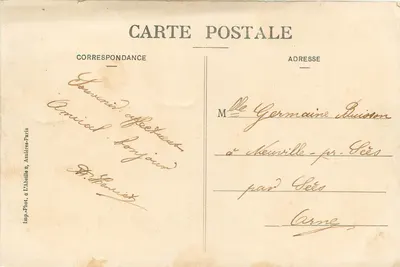 CARTE POSTALE
CORRESPONDANCE
ADRESSE
Souvenir affectueux
Amical bonjour
Mlle Germaine Buisson
à Neuville-pr-Sées
par Sées
Orne
Imp.-Phot. à l'Abeille, Asnières-Paris